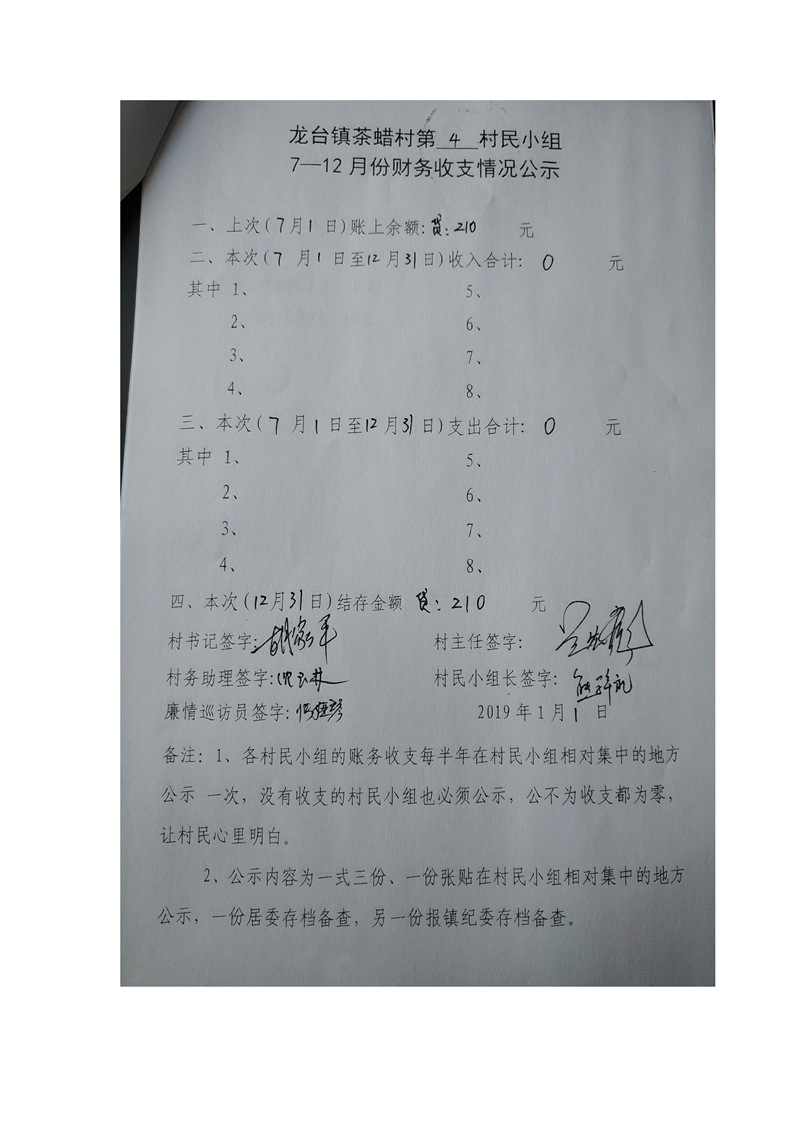 龙台镇茶蜡村第 4 村民小组
7—12月份财务收支情况公示
一、上次(7月1日)账上余额:贷:210 元
二、本次(7月1日至12月31日)收入合计: 0 元
其中 1、 5、
2、 6、
3、 7、
4、 8、
三、本次(7月1日至12月31日)支出合计: 0 元
其中 1、 5、
2、 6、
3、 7、
4、 8、
四、本次(12月31日)结存金额 贷:210 元
村书记签字: 村主任签字:
村务助理签字: 村民小组长签字:
廉情巡访员签字: 2019年1月1日
备注:1、各村民小组的账务收支每半年在村民小组相对集中的地方
公示 一次,没有收支的村民小组也必须公示,公不为收支都为零,
让村民心里明白。
2、公示内容为一式三份、一份张贴在村民小组相对集中的地方
公示,一份居委存档备查,另一份报镇纪委存档备查。